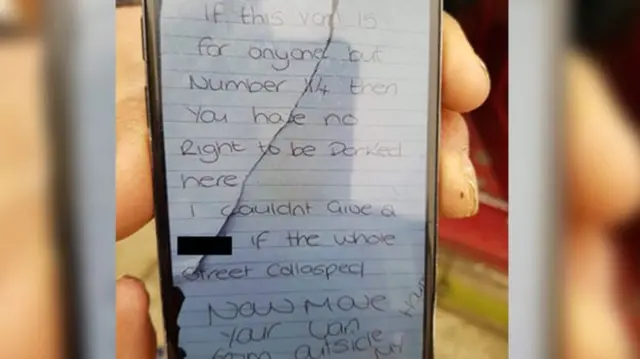 If this van is
for anyone but
Number 14 then
You have no
Right to be Parked
here
I couldnt Give a
if the whole
street Collaspecl
Now Move
Your Van
from outside